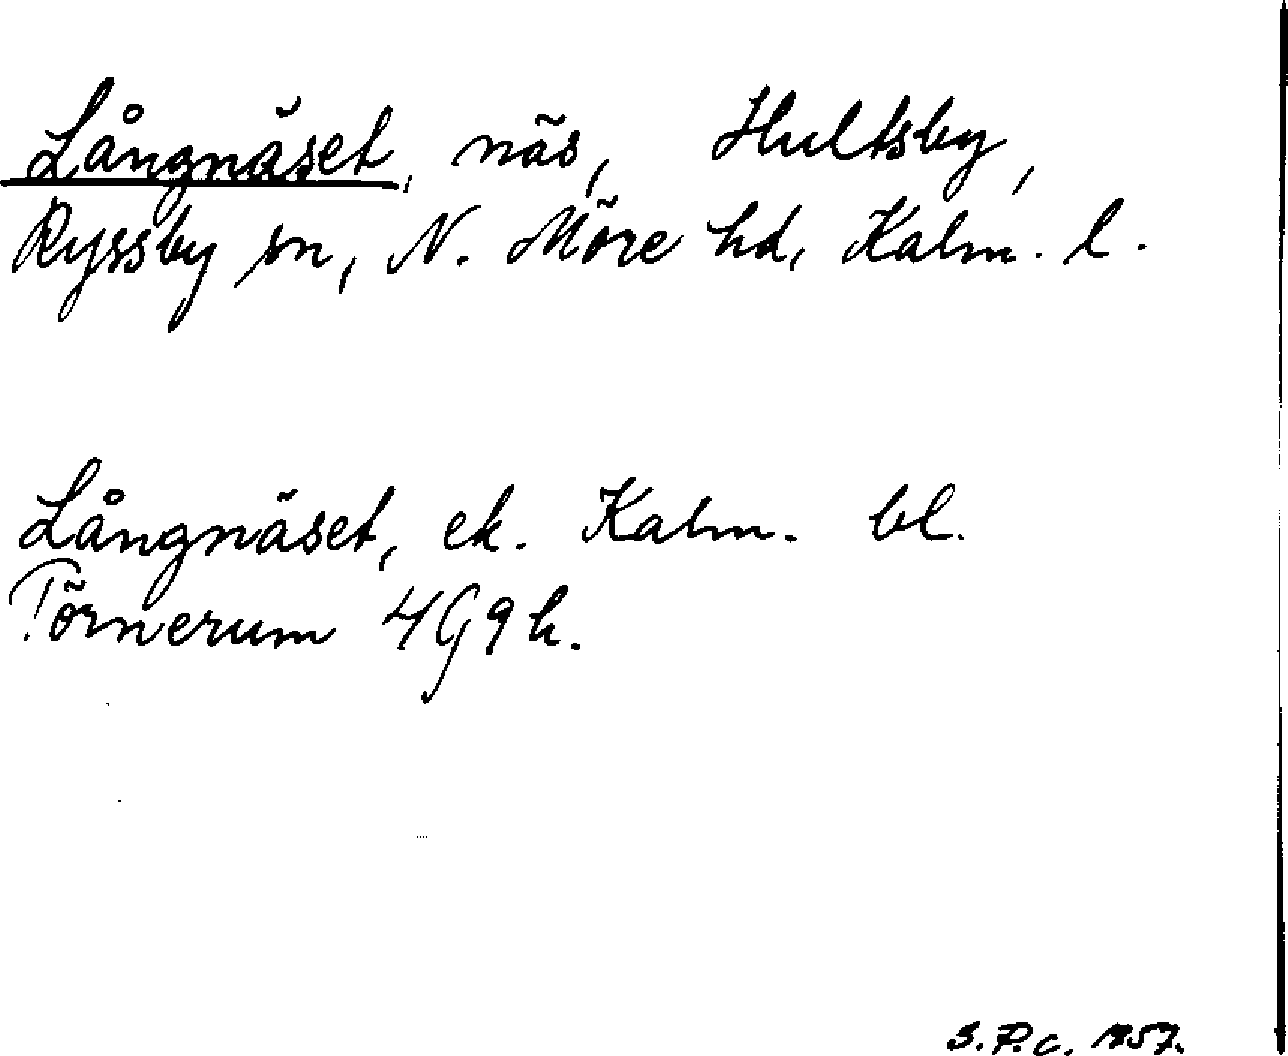 Långnäset, näs, Hultsby,
Ryssby sn, N. Möre hd, Kalm. l.
Långnäset, ek. Kalm. bl.
Törnerum 4G9h.
S.P.C. 1957.